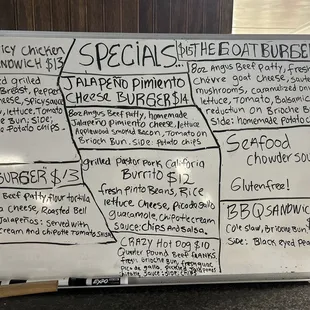 SPECIALS..
icy Chicken
SANDWICH $13
grilled
Breast, Pepper
cheese, spicy sauce
lettuce, Tomato
Bun. side:
Potato chips
BURGER $13
Beef patty, flour tortilla
cheese, Roasted Bell
Jalapeños: Served with
cream and chipotle Tomato Salsa
JALAPEÑO PIMIENTO
CHEESE BURGER $14
8oz Angus Beef patty, homemade
Jalapeño Pimiento cheese, lettuce
Applewood smoked bacon, Tomato on
Brioch Bun. side: potato chips
grilled Pastor Pork California
Burrito $12
fresh pinto Beans, Rice
lettuce Cheese, pico de gallo
guacamole, chipotle cream
sauce: chips and salsa.
CRAZY Hot Dog $10
Quarter Pound Beef FRANKS,
fresh brioche Bun,
pico de gallo,
sauce: side: chips
$15 THE GOAT BURGER
8oz Angus Beef patty, fresh
chévre goat cheese, saute
mushrooms, caramelized onion
lettuce, Tomato, Balsamic
reduction on Brioche B
Side: homemade potato c
Seafood
chowder sou
Glutenfree!
BBQ SANDWIC
Cole slaw, brioche Bun
Side: Black eyed pea
EXPO